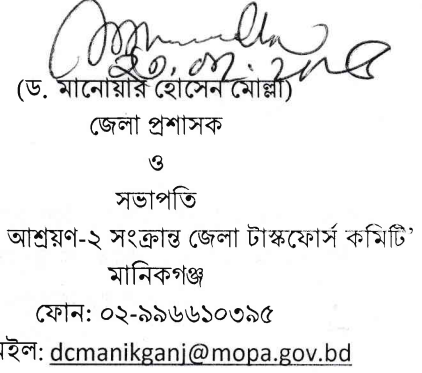 (ড. মানোয়ার হোসেন মোল্লা)
জেলা প্রশাসক
ও
সভাপতি
আশ্রয়ণ-২ সংক্রান্ত জেলা টাস্কফোর্স কমিটি’
মানিকগঞ্জ
ফোন: ০২-৯৯৬৬১০৩৯৫
মইল: dcmanikganj@mopa.gov.bd